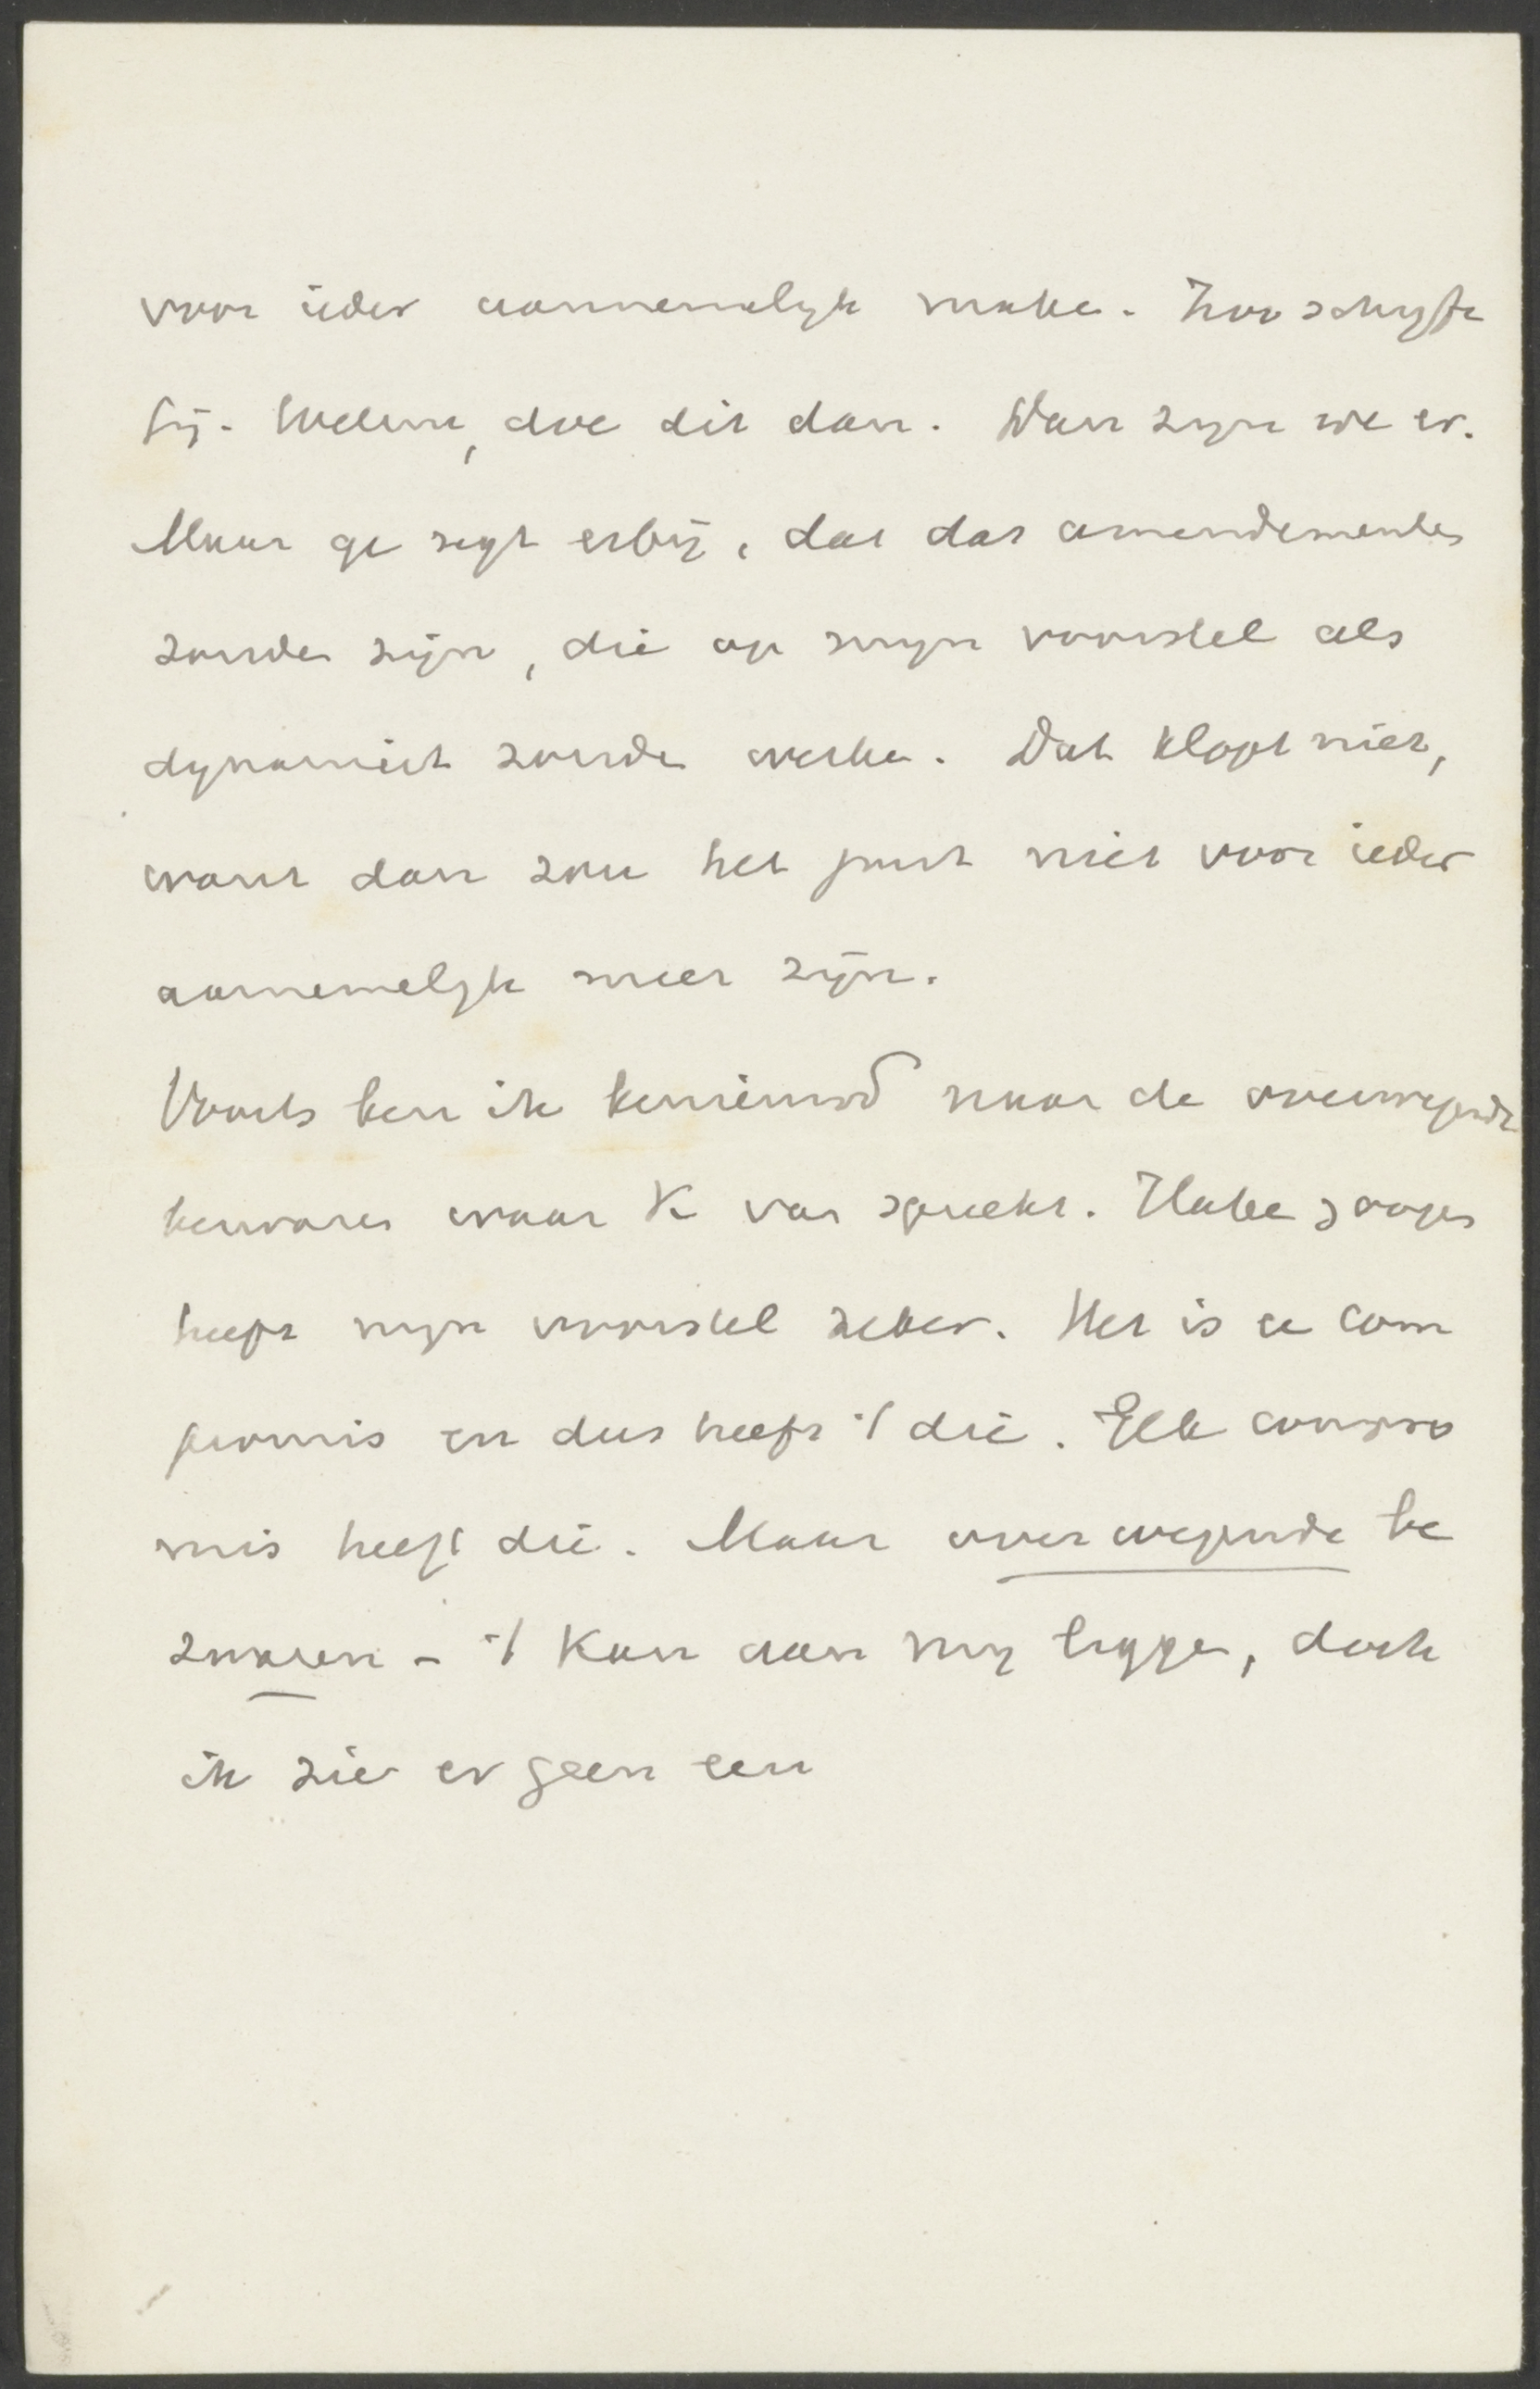 voor ieder aannemelijk make. Zoo schryft
hij. Welnu, doe dit dan. Dan zyn we er.
Maar ge zegt erbij, dat dat amendementen
zoude zijn, die op myn voorstel als
dynamiet zoude werke. Dat klopt niet,
want dan zou het juist niet voor ieder
aannemelyk meer zijn.
Voorts ben ik benieuwd naar de overwegende
bezwaren waar K van spreekt. Hake & oogen
heeft myn voorstel zeker. Het is ee com
promis en dus heeft 't die. Elk compro
mis heeft die. Maar overwegende be
zwaren – 't kan aan my ligge, doch
ik zie er geen een